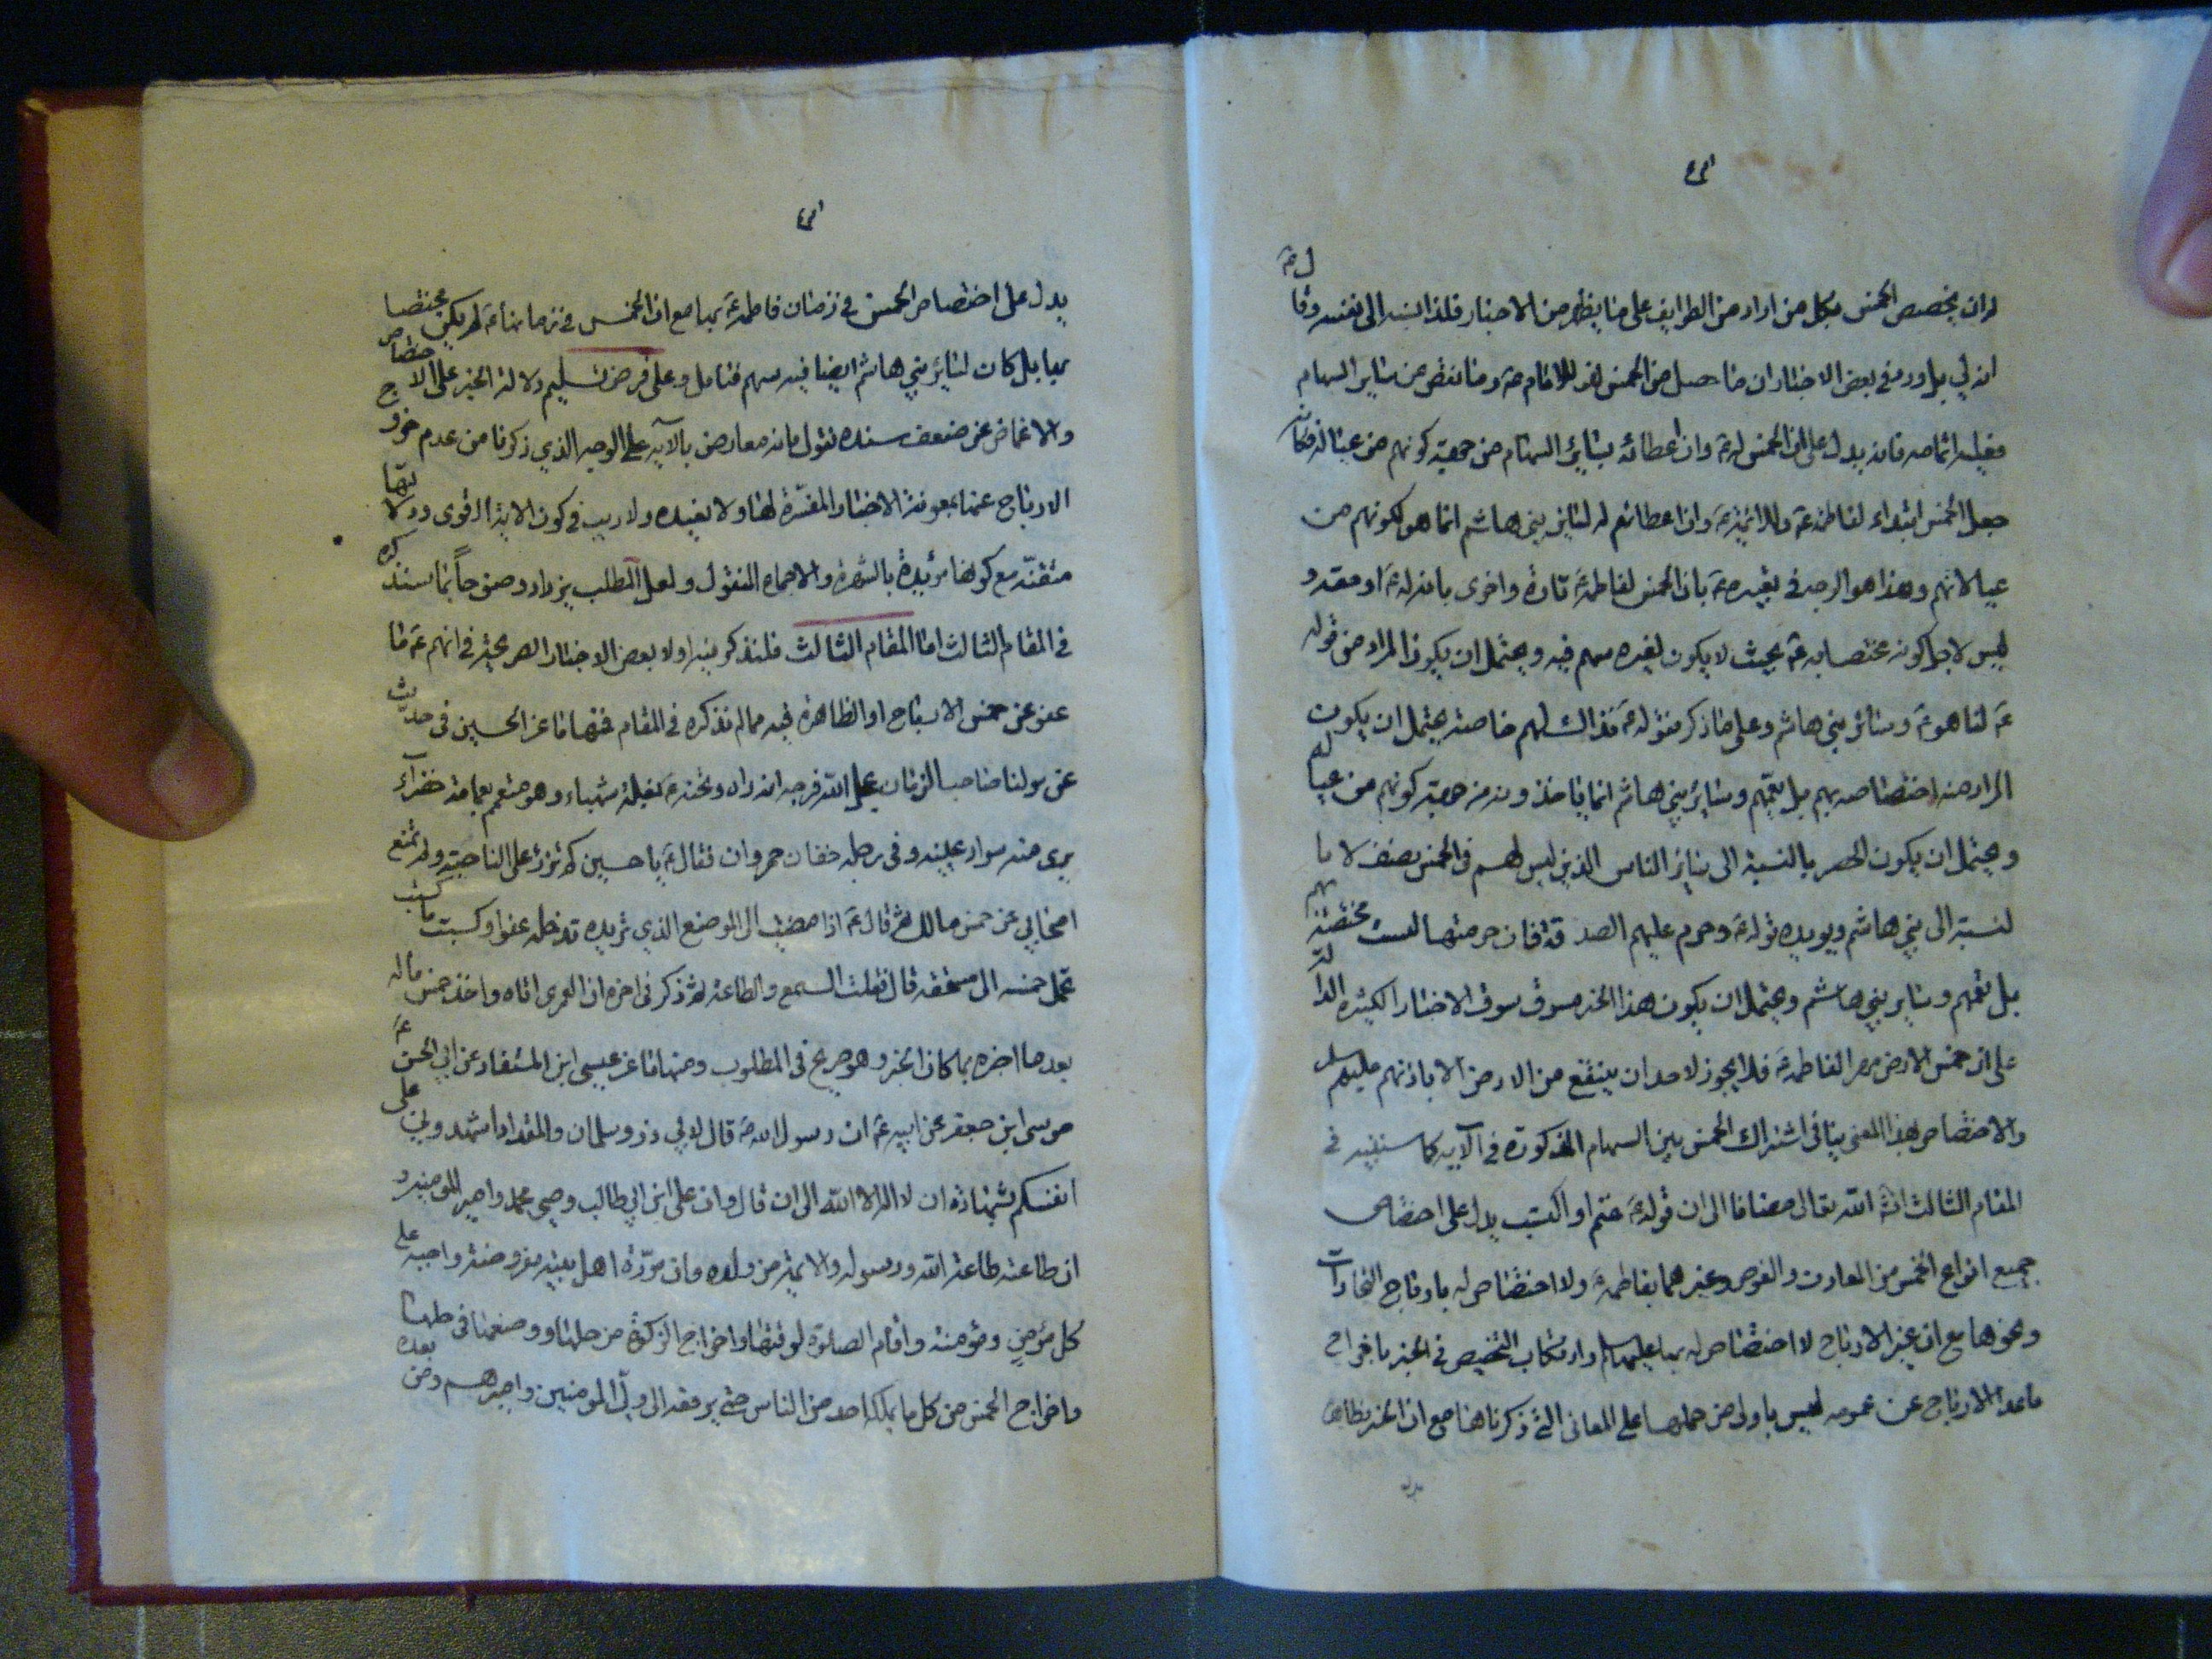 له ان يخصص الخمس بكل من اراد من الطرايف على ما يظهر من الاخبار فلذا نسبه الى نفسه وقال ع
انه لي بل ورد في بعض الاخبار ان ما حصل من الخمس للامام ع وما نقص عن ساير السهام
فعليه اتمامه فانه يدل على ان الخمس له ع وان اعطائه بساير السهام من جهة كونهم من عياله فكان
جعل الخمس ابتداء لفاطمة ع وللائمة ع وان اعطائهم له لساير بني هاشم انما هو لكونهم من
عيالاتهم وهذا هو الوجه في تعبيره ع بان الخمس لفاطمة ع تارة واخرى بانه له ع او مقصده
ليس لاجل كونه مختصا به ع بحيث لا يكون لغيره سهم فيه ويحتمل ان يكون المراد من قوله
ع لنا هو ع وساير بني هاشم وعلى ما ذكر فقوله ع فذاك لهم خاصة يحتمل ان يكون
المراد منه اختصاصه بهم بل يعمهم وساير بني هاشم انما ياخذونه من جهة كونهم من عيالهم
ويحتمل ان يكون الحصر بالنسبة الى ساير الناس الذين ليس لهم في الخمس نصف لا با
لنسبة الى بني هاشم ويؤيده قوله ع وحرم عليهم الصدقة فان حرمتها ليست مختصة بهم
بل تعمهم وساير بني هاشم ويحتمل ان يكون هذا الخبر مسوق سوق الاخبار الكثيره الدالة
على ان خمس الارض مهر الفاطمة ع فلا يجوز لاحد ان ينتفع من الارض الا باذنهم عليهم السلم
والاختصاص بهذا المعنى ينافي اشتراك الخمس بين السهام المذكورة في الآية كما سنبينه في
المقام الثالث انشاء الله تعالى مضافا الى ان قوله ع غنم او اكتسب يدل على اختصاص
جميع انواع الخمس من المعادن والغوص وغيرهما بفاطمة ع ولا اختصاص له بارباح التجارات
ونحوها مع ان غير الارباح لا اختصاص له بها عليها السلم وارتكاب التخصيص في الخبر باخراج
ماعدا الارباح عن عمومه ليس باولى من حملها على المعاني التي ذكرناها مع ان الخبر بظاهره
يدل
يدل على اختصاص الخمس في زمان فاطمة ع بها مع ان الخمس في زمانها ع لم يكن مختصا
بها بل كان لساير بني هاشم ايضا فيه سهم فتامل وعلى فرض تسليم دلالة الخبر على الاختصاص
والاغماض عن ضعف سنده نقول بانه معارض بالآية على الوجه الذي ذكرنا من عدم خروج
الارباح عنها بمعونة الاخبار المفسرة لها ولا يفيده ولا ريب في كون الاية اقوى ودلالتها
متقنة مع كونها مؤيدة بالشهرة والاجماع المنقول ولعل المطلب يزداد وضوحاً بما سنذكره
في المقام الثالث اما المقام الثالث فلنذكر فيه اولا بعض الاخبار الصريحة في انهم ع ما
عفو عن خمس الارباح او الظاهرة فيه مما لم نذكره في المقام فمنها ما عن الحسين في حديث
عن مولنا صاحب الزمان عجل الله فرجه انه راه وتحته ع بغلة شهباء وهو متعمم بعمامة خضراء
يرى منه سواد عينيه وفي رجله خفان حمروان فقال ع يا حسين كم تزرء على الناحية ولم تمنع
اصحابي عن خمس مالك ثم قال ع اذا مضيت الى الموضع الذي تريده تدخله عفوا وكسبت ما كسبت
تحمل خمسه الى مستحقه قال فقلت السمع والطاعة ثم ذكر في اخره ان العمري اتاه واخذ خمس ماله
بعد ما اخبره بما كان الخبر وهو صريح في المطلوب ومنها ما عن عيسى ابن المستفاد عن ابي الحسن ع
موسى ابن جعفر عن ابيه ع ان رسول الله ص قال لابي ذر وسلمان والمقداد اشهدوني على
انفسكم بشهادة ان لا اله الا الله الى ان قال وان علي ابن ابي طالب وصي محمد وامير المومنين و
ان طاعته طاعة الله ورسوله والائمة من ولده وان مودة اهل بيته مفروضة واجبه على
كل مؤمن ومؤمنة واقام الصلوة لوقتها واخراج الزكوة من حلها ووضعها في حلها
واخراج الخمس من كل ما يملكه احد من الناس حتى يرفعه الى ولي المومنين واميرهم ومن بعده